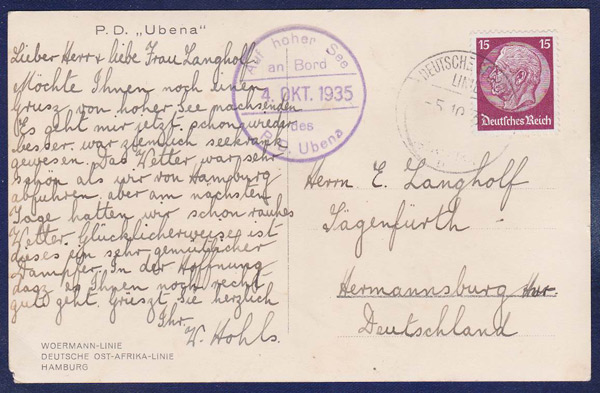 P.D. „Ubena"
Lieber Herr & liebe Frau Langholf
Möchte Ihnen noch einen
Grusz von hoher See nachsenden
Es geht mir jetzt schon wieder
besser, war ziemlich seekrank
gewesen. Das Wetter war sehr
schön als wir von Hamburg
abfuhren aber am nächsten
Tage hatten wir schon rauhes
Wetter. Glücklicherweise ist
dieses ein sehr gemütlicher
Dampfer. In der Hoffnung
dasz es Ihnen noch recht
gut geht. Grüszt Sie herzlich
Ihr.
W. Hohls.
WOERMANN-LINIE
DEUTSCHE OST-AFRIKA-LINIE
HAMBURG
Auf hoher See
an Bord
4. OKT. 1935
des
Ubena
DEUTSCHE
LINIE
-5.10
15 15
Deutsches Reich
Herrn E. Langholf
Sägenfürth
Hermannsburg Han.
Deutschland